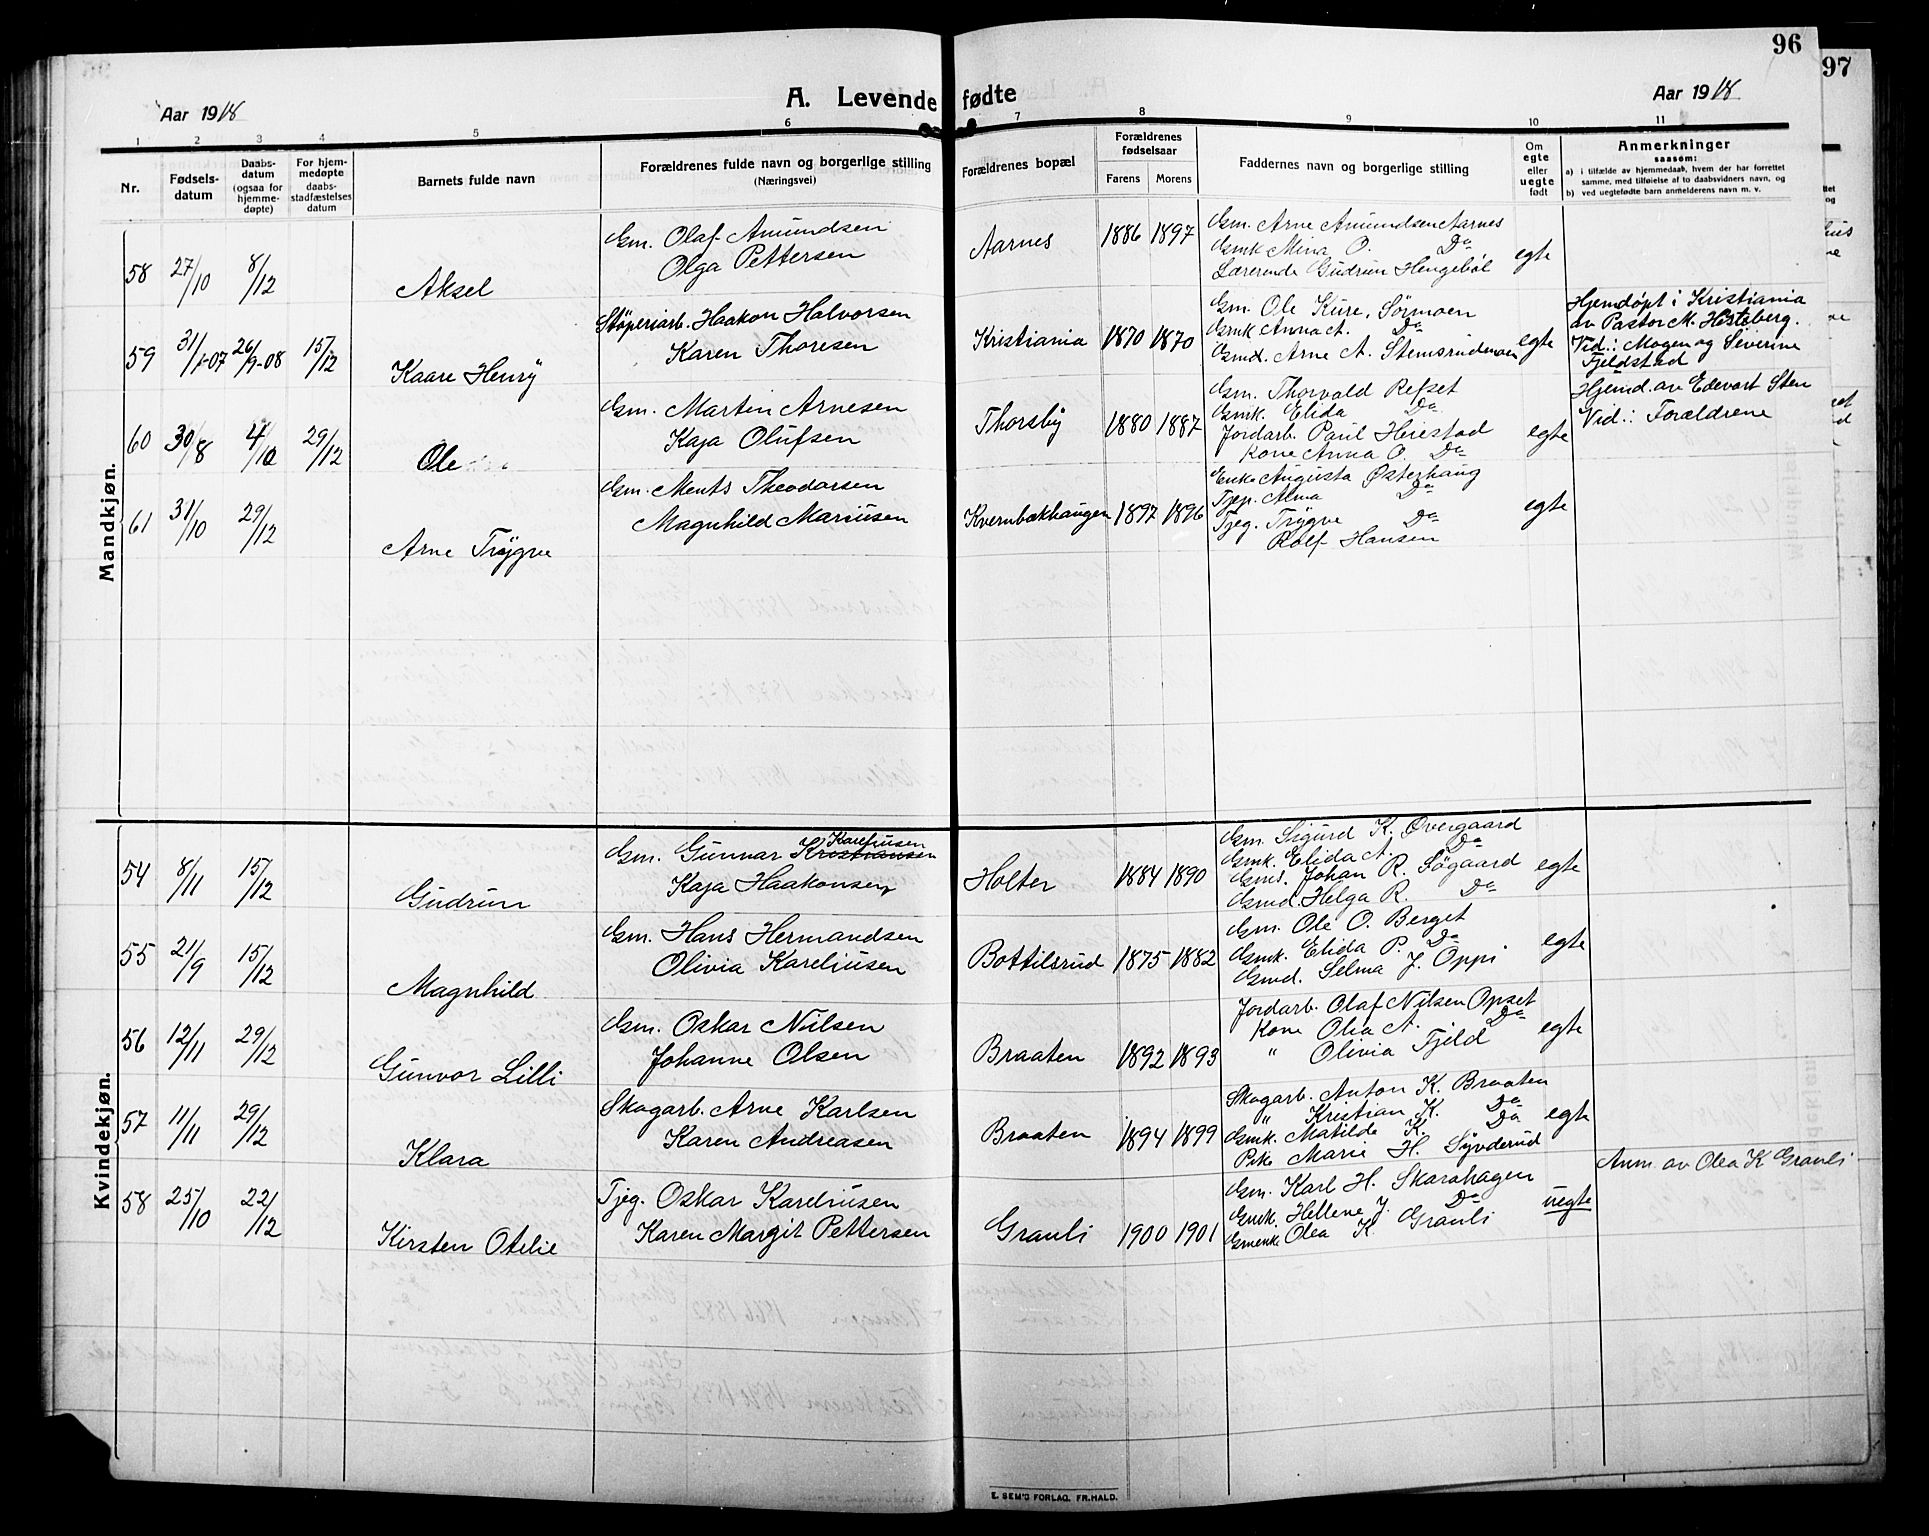 96
97
A. Levende fødte
Aar 1918
Aar 1918
1 2 3 4 5 6 7 8 9 10 11
Nr.
Fødsels-
datum
Daabs-
datum
(ogsaa for
hjemme-
døpte)
For hjem-
medøpte
daabs-
stadfæstelses
datum
Barnets fulde navn
Forældrenes fulde navn og borgerlige stilling
(Næringsvei)
Forældrenes bopæl
Forældrenes
fødselsaar
Farens Morens
Faddernes navn og borgerlige stilling
Om
egte
eller
uegte
født
Anmerkninger
saasom:
a) i tilfælde av hjemmedaab, hvem der har forrettet
samme, med tilføielse af to daabsvidners navn, og
b) ved uegtefødte barn anmelderens navn m. v.
Mandkjøn.
58 27/10 8/12 Aksel
Gm. Olaf Amundsen
Olga Pettersen
Aarnes 1886 1897
Gm. Arne Amundsen Aarnes
Gmk Mina O. Do
Lærerinde Gudrun Hengebøl
egte
59 31/1-07 26/9-08 15/12 Kaare Henry
Støperiarb. Haakon Halvorsen
Karen Thoresen
Kristiania 1870 1870
Gm. Ole Kure, Sørmoen
Gmk Anna A. Do
Gmd. Arne A. Stemsrudmoen
egte
Hjemdøpt i Kristiania
av Pastor M. Hesteberg.
Vid.: Mogen og Severine
Fjeldstad
60 30/8 4/10 29/12 Ole
Gm. Martin Arnesen
Kaja Olufsen
Thorsby 1880 1887
Gm. Thorvald Refset
Gmk. Elida Do
Jordarb. Paul Heiestad
Kone Anna O. Do
egte
Hjemd. av Edevart Sten
Vid.: Forældrene
61 31/10 29/12 Arne Trygve
Gm. Ments Theodorsen
Magnhild Mariusen
Kvernbækhaugen 1897 1896
Enke Augusta Østerhaug
Tjep. Alma Do
Tjeg. Trygve Do
Rolf Hansen
egte
Kvindekjøn.
54 8/11 15/12 Gudrun
Kareliusen
Gm. Gunnar Kristiansen
Kaja Haakonsen
Holter 1884 1890
Gm. Sigurd K. Overgaard
Gmk. Elida A. Do
Gms. Johan R. Søgaard
Gmd. Helga R. Do
egte
55 21/9 15/12 Magnhild
Gm. Hans Hermandsen
Olivia Kareliusen
Bottilsrud 1875 1882
Gm. Ole O. Berget
Gmk. Elida P. Do
Gmd. Selma J. Oppi
egte
56 12/11 29/12 Gunvor Lilli
Gm. Oskar Nilsen
Johanne Olsen
Braaten 1892 1893
Jordarb. Olaf Nilsen Opset
Kone Olia A. Do
" Olivia Fjeld
egte
57 11/11 29/12 Klara
Skogarb. Arne Karlsen
Karen Andreasen
Braaten 1894 1899
Skogarb. Anton K. Braaten
" Kristian K. Do
Gmk. Matilde K. Do
Pike Marie H. Synderud
egte
58 25/10 22/12 Kirsten Otelie
Tjeg. Oskar Kareliusen
Karen Margit Pettersen
Grauli 1900 1901
Gm. Karl H. Skarahagen
Gmk. Hellene J. Do
Gmenke Olea K. Grauli
uegte
Anm. av Olea K Grauli
E. SEM'S FORLAG, FR.HALD.